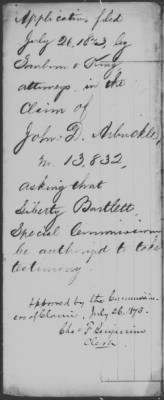 Application filed
July 26, 1873, by
& King
attorneys, in the
Claim of
John D. Arbuckle,
No. 13,832,
asking that
Liberty Bartlett,
Special Commissioner
be authorized to take
testimony.
Approved by the Commission-
ers of Claims, July 26, 1873.
Chas F. Benjamin
Clerk.